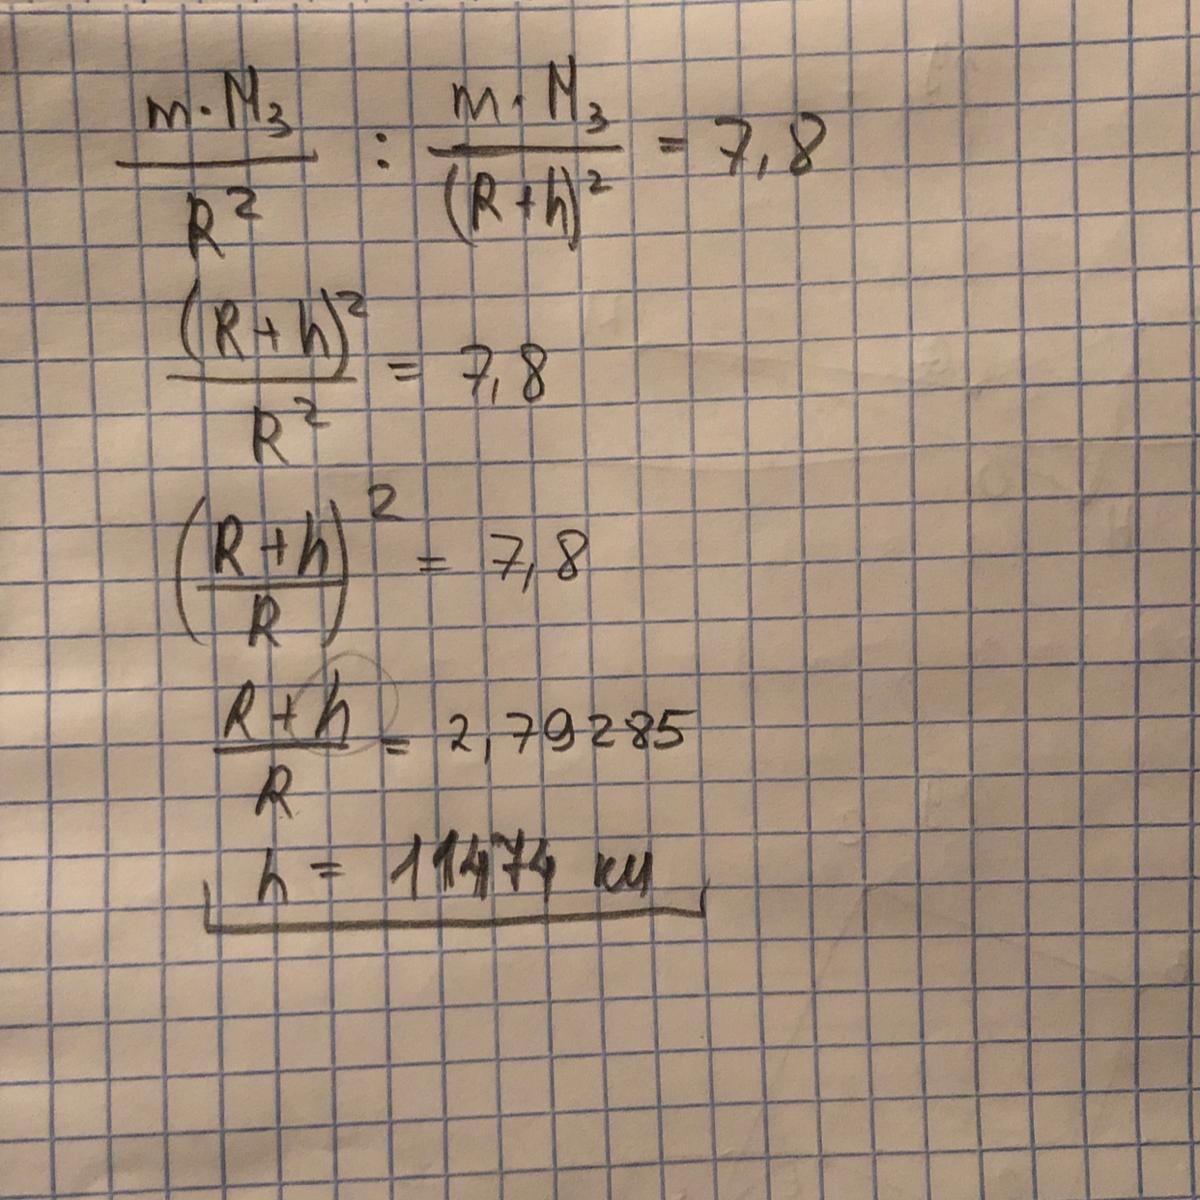 m·M₃/R² : m·M₃/(R+h)² = 7,8
(R+h)²/R² = 7,8
((R+h)/R)² = 7,8
(R+h)/R = 2,79285
h = 11474 км